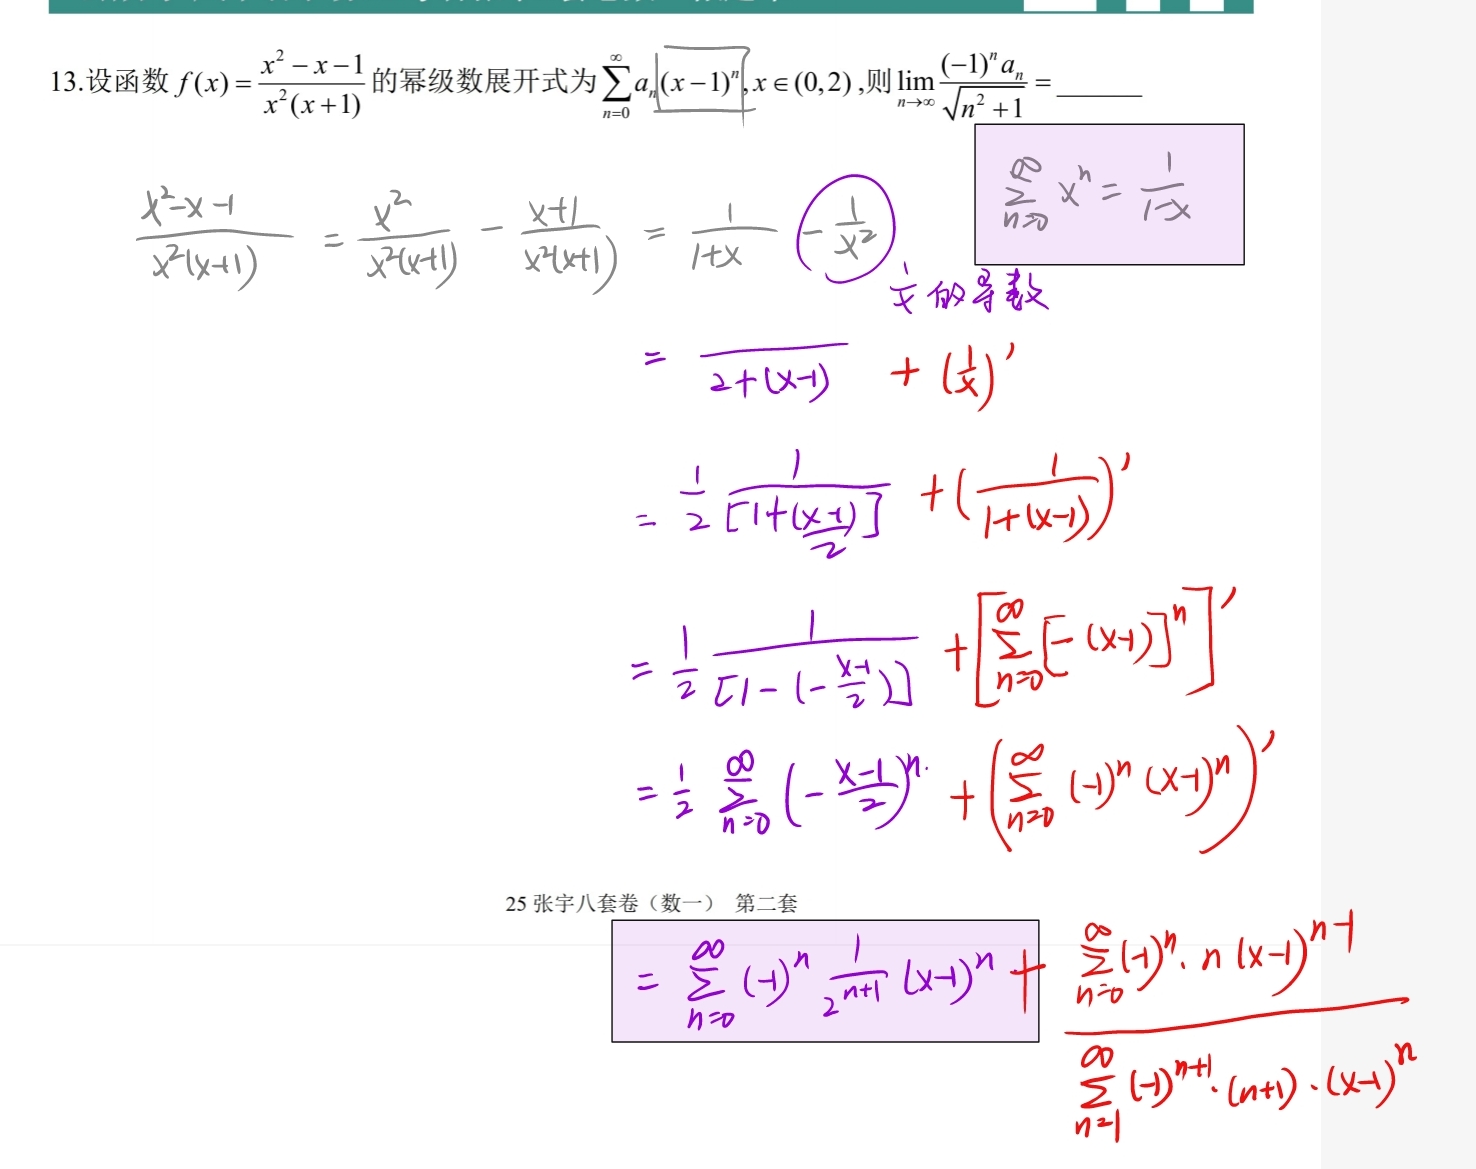 13.设函数 f(x) = \frac{x^2 - x - 1}{x^2(x+1)} 的幂级数展开式为 \sum_{n=0}^{\infty} a_n (x-1)^n, x ∈ (0,2) ,则 \lim_{n→∞} \frac{(-1)^n a_n}{\sqrt{n^2+1}} = ______
\sum_{n=0}^{\infty} x^n = \frac{1}{1-x}
\frac{x^2-x-1}{x^2(x+1)} = \frac{x^2}{x^2(x+1)} - \frac{x+1}{x^2(x+1)} = \frac{1}{1+x} - \frac{1}{x^2}
\frac{1}{x} 的导数
= \frac{}{2+(x-1)} + (\frac{1}{x})'
= \frac{1}{2} \frac{1}{[1+\frac{(x-1)}{2}]} + (\frac{1}{1+(x-1)})'
= \frac{1}{2} \frac{1}{[1-(-\frac{x-1}{2})]} + [\sum_{n=0}^{∞} [-(x-1)]^n]'
= \frac{1}{2} \sum_{n=0}^{∞} (-\frac{x-1}{2})^n + (\sum_{n=0}^{∞} (-1)^n (x-1)^n)'
25 张宇八套卷（数一） 第二套
= \sum_{n=0}^{∞} (-1)^n \frac{1}{2^{n+1}} (x-1)^n + \sum_{n=0}^{∞} (-1)^n · n (x-1)^{n-1}
\sum_{n=1}^{∞} (-1)^{n+1} · (n+1) · (x-1)^n